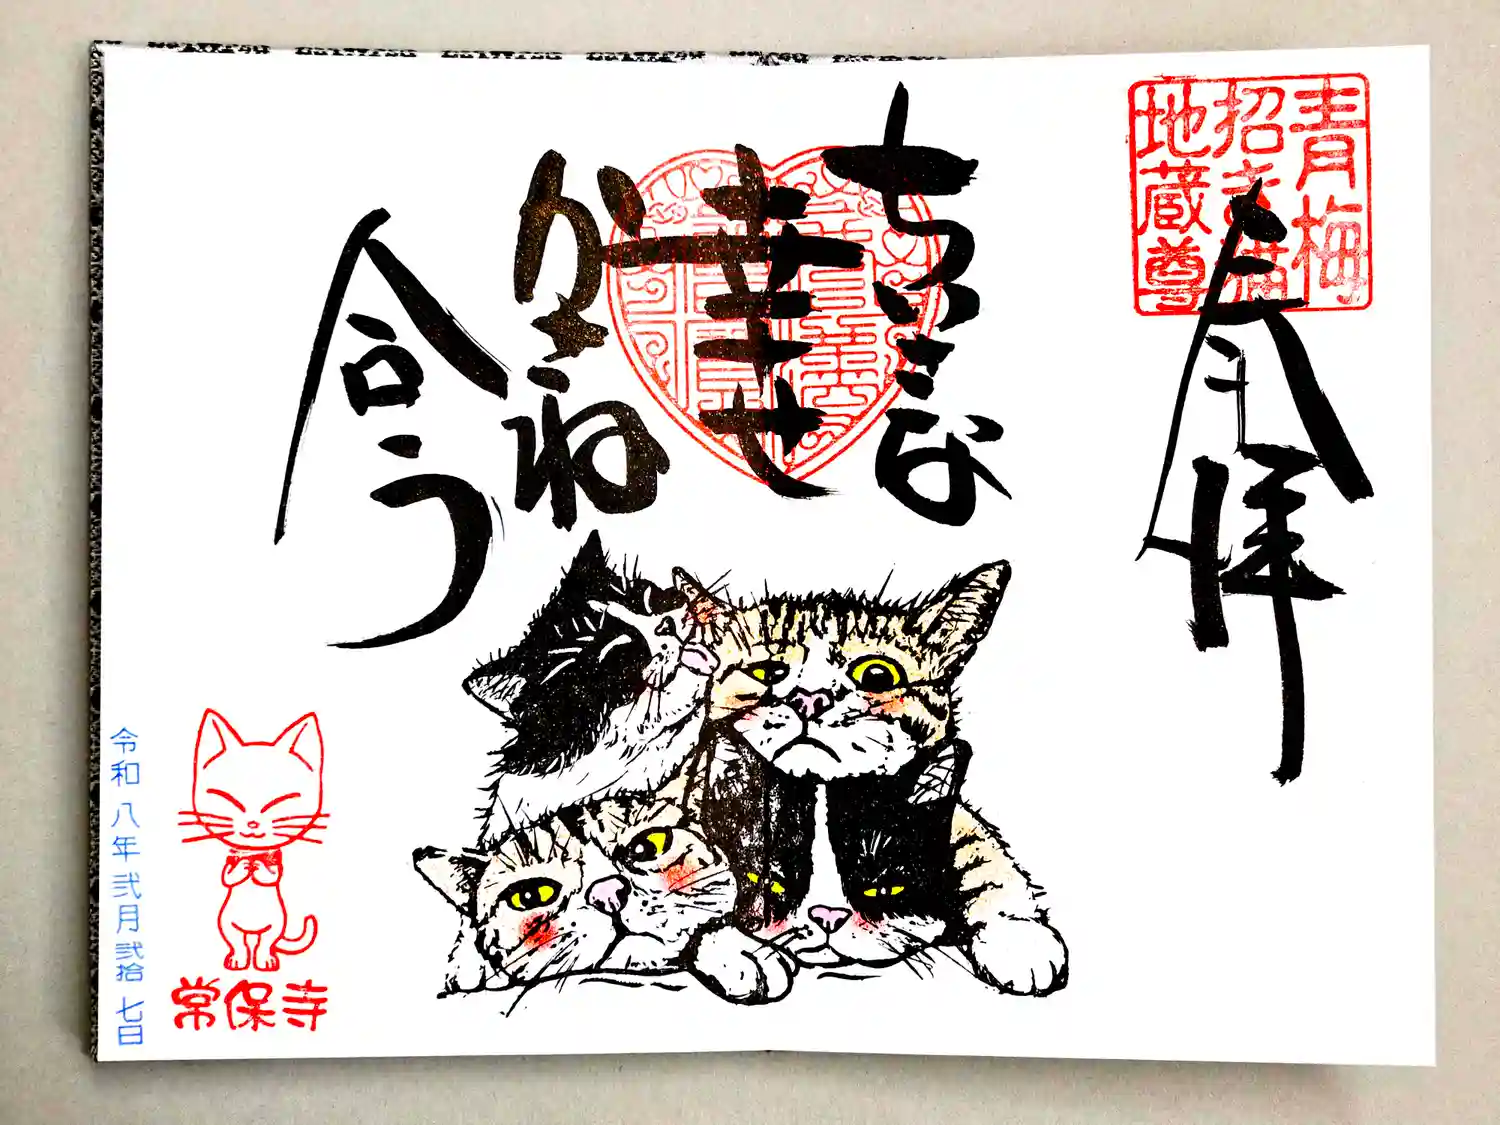 青梅
招き猫
地蔵尊
奉拝
ちいさな
幸せ
かさね
合う
常保寺
令和八年弐月弐拾七日